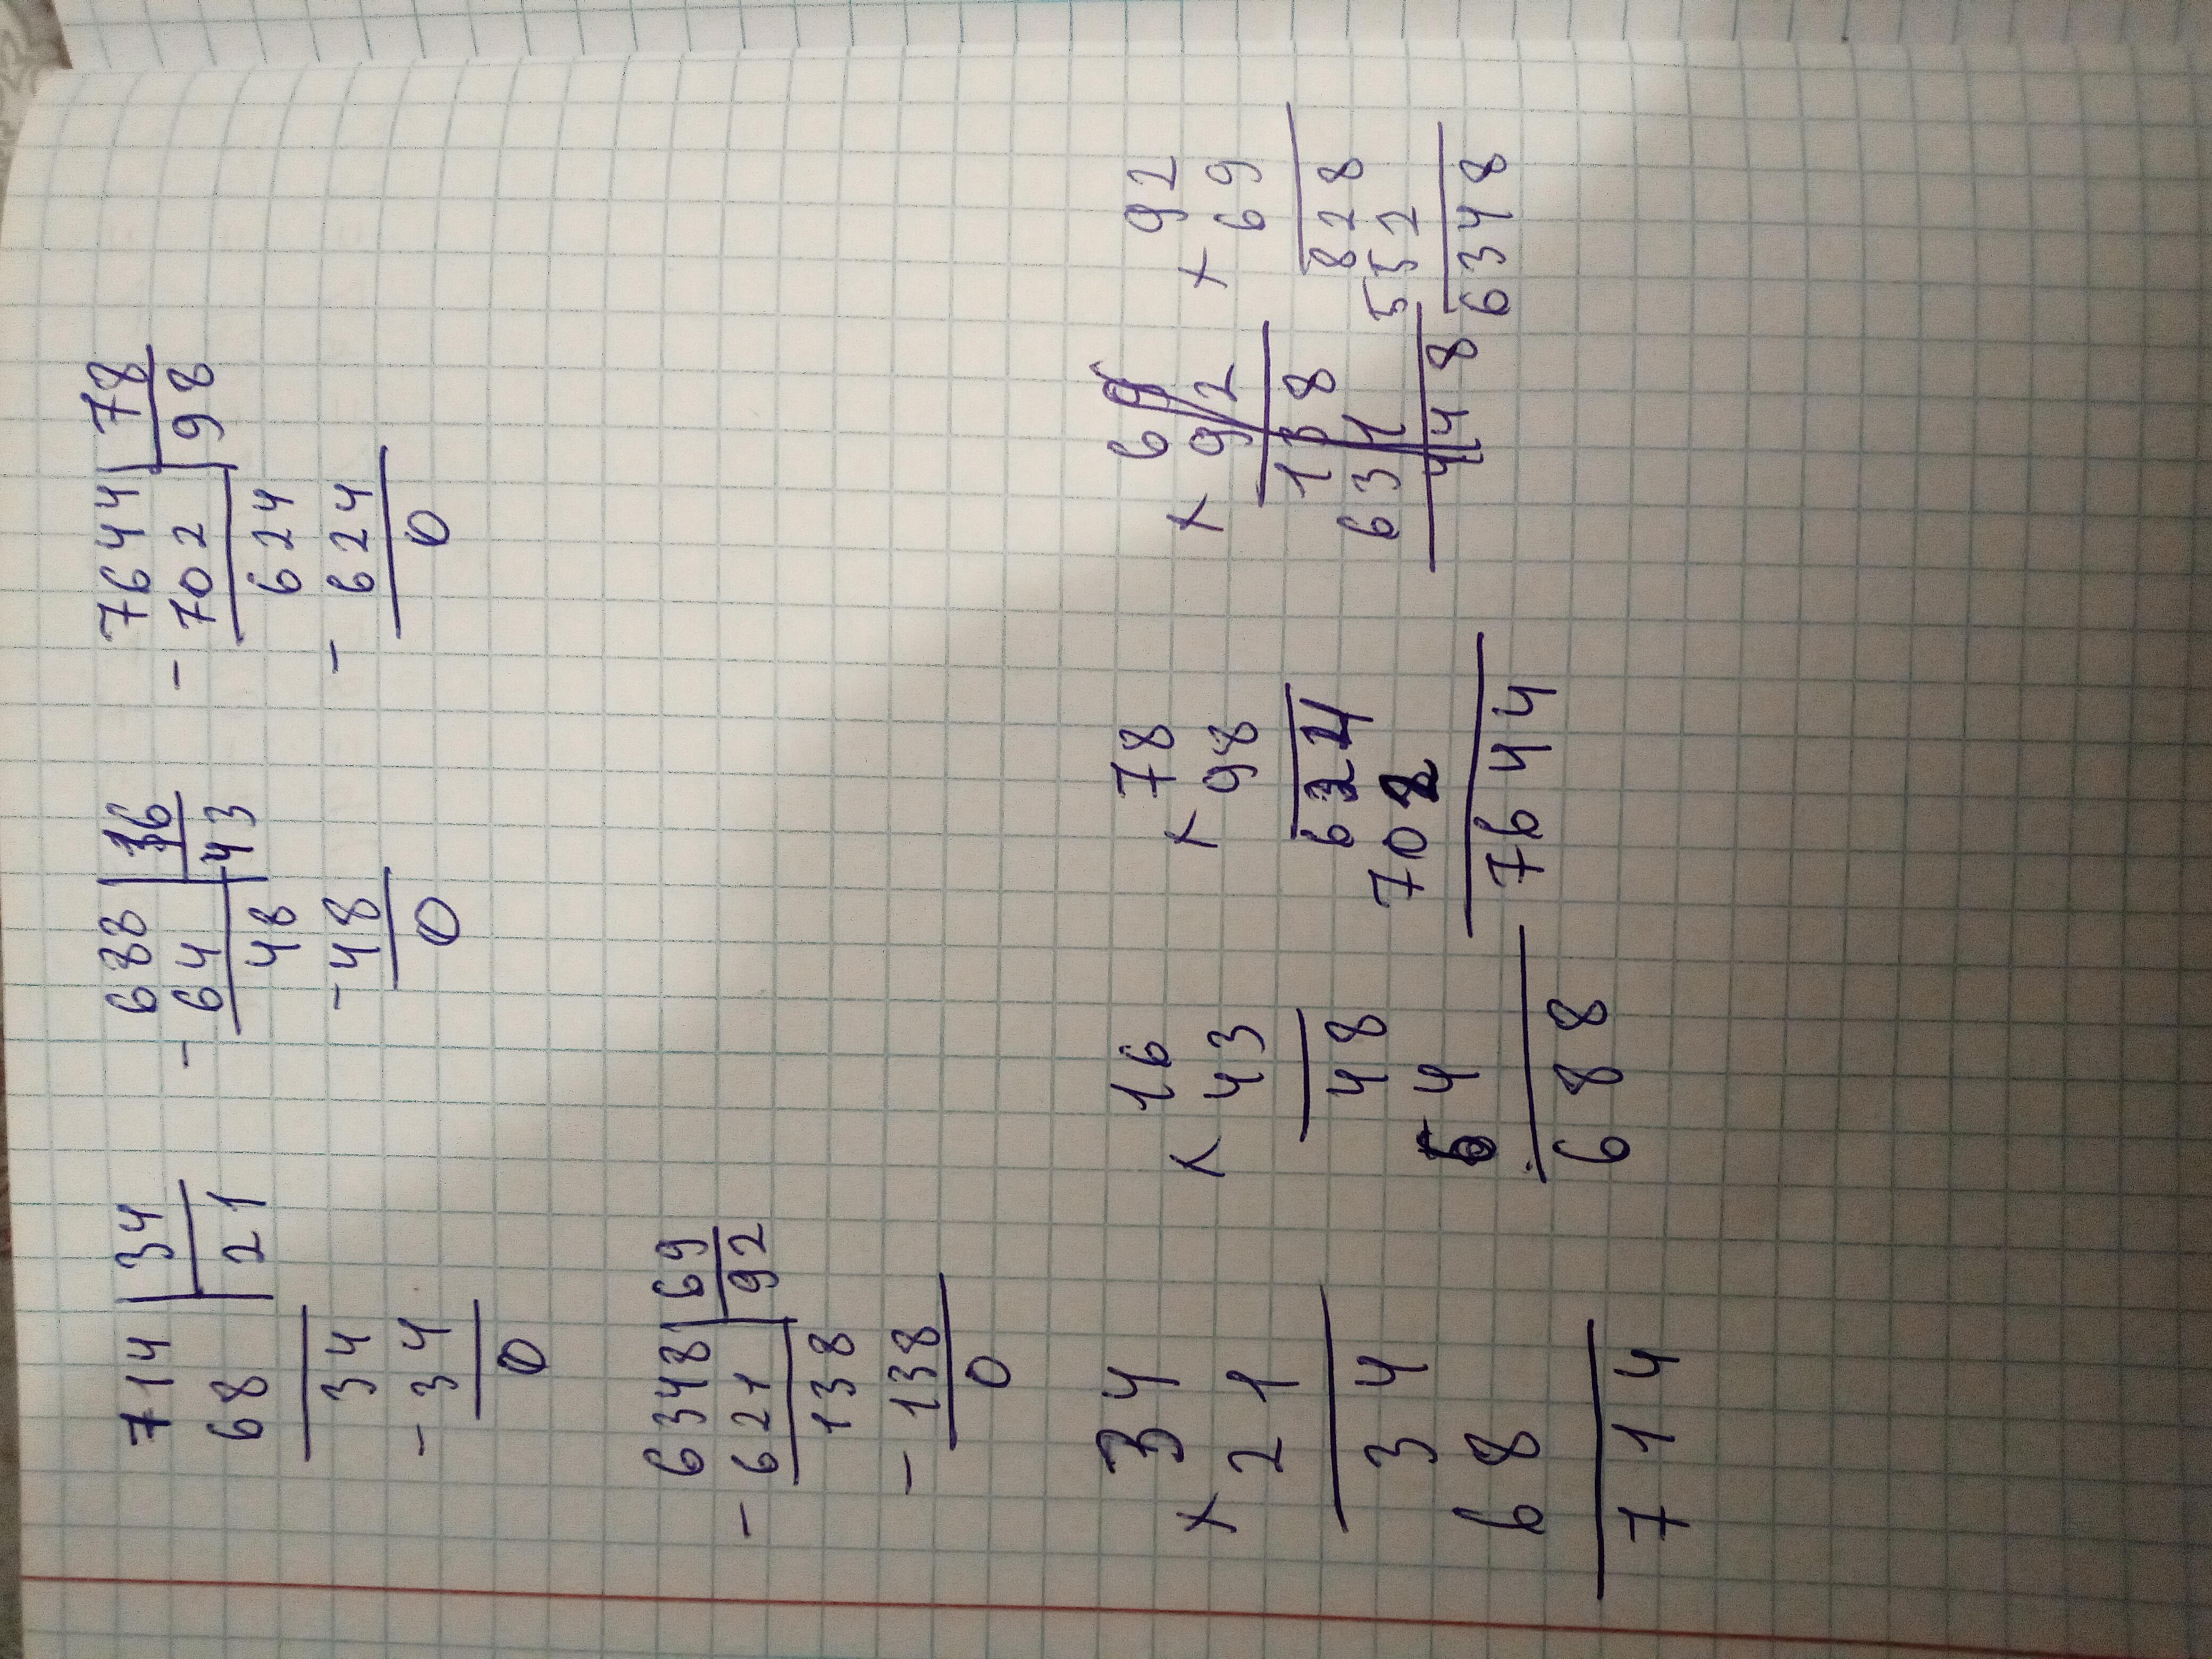 714 | 34
68 | 21
34
- 34
0
688 | 16
- 64 | 43
48
- 48
0
7644 | 78
- 702 | 98
624
- 624
0
6348 | 69
- 621 | 92
138
- 138
0
34
× 21
34
68
714
16
× 43
48
64
688
78
× 98
624
702
7644
69
× 92
138
631
448
92
× 69
828
552
6348